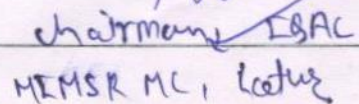 Chairman, IQAC
MIMSR MC, Latur